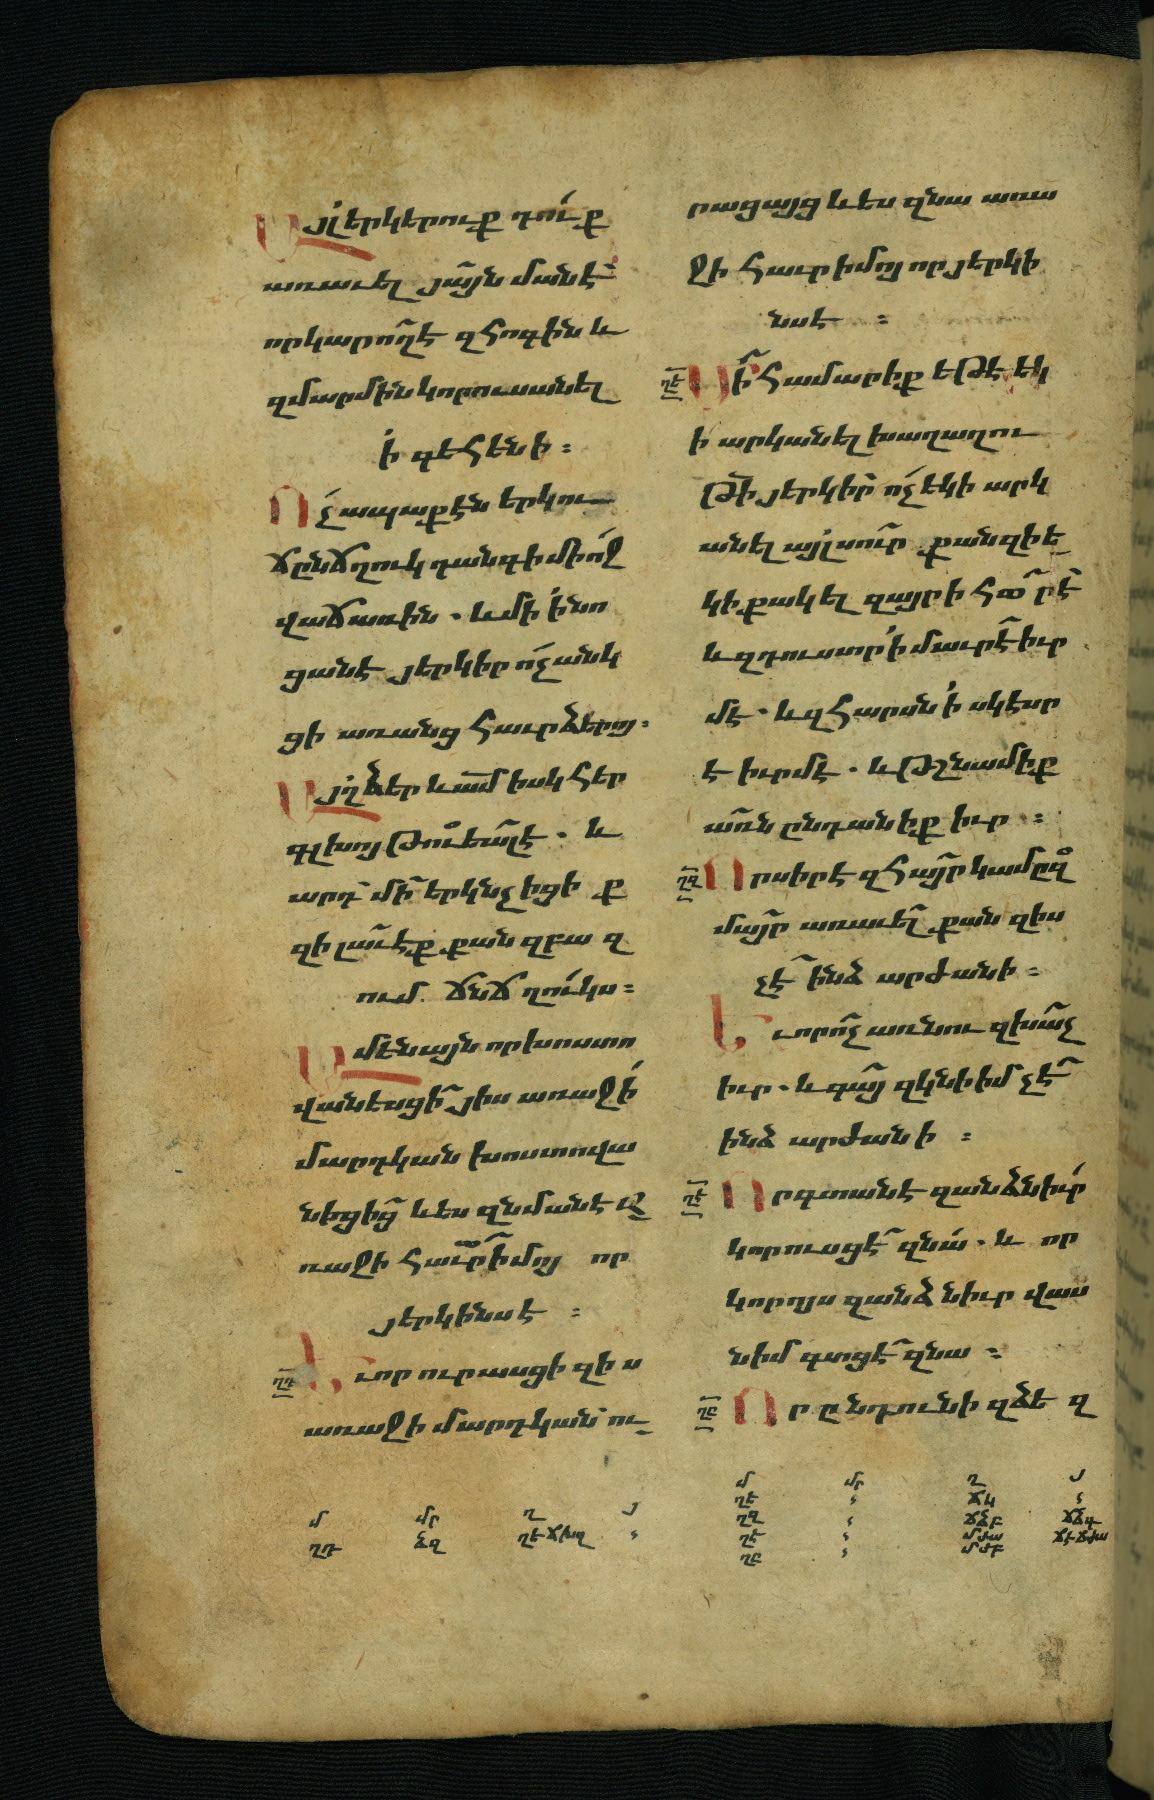 Այլ երկերուք դուք
առաւել յայնմանէ
որ կարող է զհոգին և
զմարմին կորուսանել
ի գեհենի։
Ոչ ապաքէն երկու
ճընճղուկ դանգի միոջ
վաճառին. և մի ի նո
ցանէ յերկիր ոչ անկ
ցի առանց հաւր ձերոյ։
Այղ ձեր և ամ իսկ հեր
գլխոյ թուեալ է. և
արդ մի երկնչեցի ք
զի լաւ էք քան զբա զ
ում ճնճղուկս։
Ամենայն որ խոստո
վանեսցի յիս առաջի
մարդկան խոստովա
նեցից և ես զնմանէ ա
ռաջի հաւր իմոյ որ
յերկինս է։
ՂԴ Եւ որ ուրասցի զիս
առաջի մարդկան ու
րացայց և ես զնա առա
ջի հաւր իմոյ որ յերկի
նս է։
ՂԵ Մի համարիք եթէ եկ
ի արկանել խաղաղու
թի յերկիր ոչ եկի արկ
անել այլ սուր քանզի ե
կի քակել զայր ի հօրէ
և զդուստր ի մաւրէ իւր
մէ. և զհարսն ի սկեսր
է իւրմէ. և թշնամիք
առն ընդանիք իւր։
ՂԶ Որ սիրէ զհայր կամ զ
մայր առաւել քան զիս
չէ ինձ արժանի։
Եւ որ ոչ առնու զխաչ
իւր. և գայ զկնի իմ չէ
ինձ արժանի։
ՂԷ Որ գտանէ զանձն իւր
կորուսցէ զնա. և որ
կորոյս զանձն իւր վաս
ն իմ գտցէ զնա։
ՂԸ Որ ընդունի զձե զ
մ մր ղ յ
ղդ ձզ ղէ ճխզ
մ մր ղ յ
ղե ճկ
ղզ ճձբ ճձգ
ղէ մժա ճէ ճժա
ղը մժբ